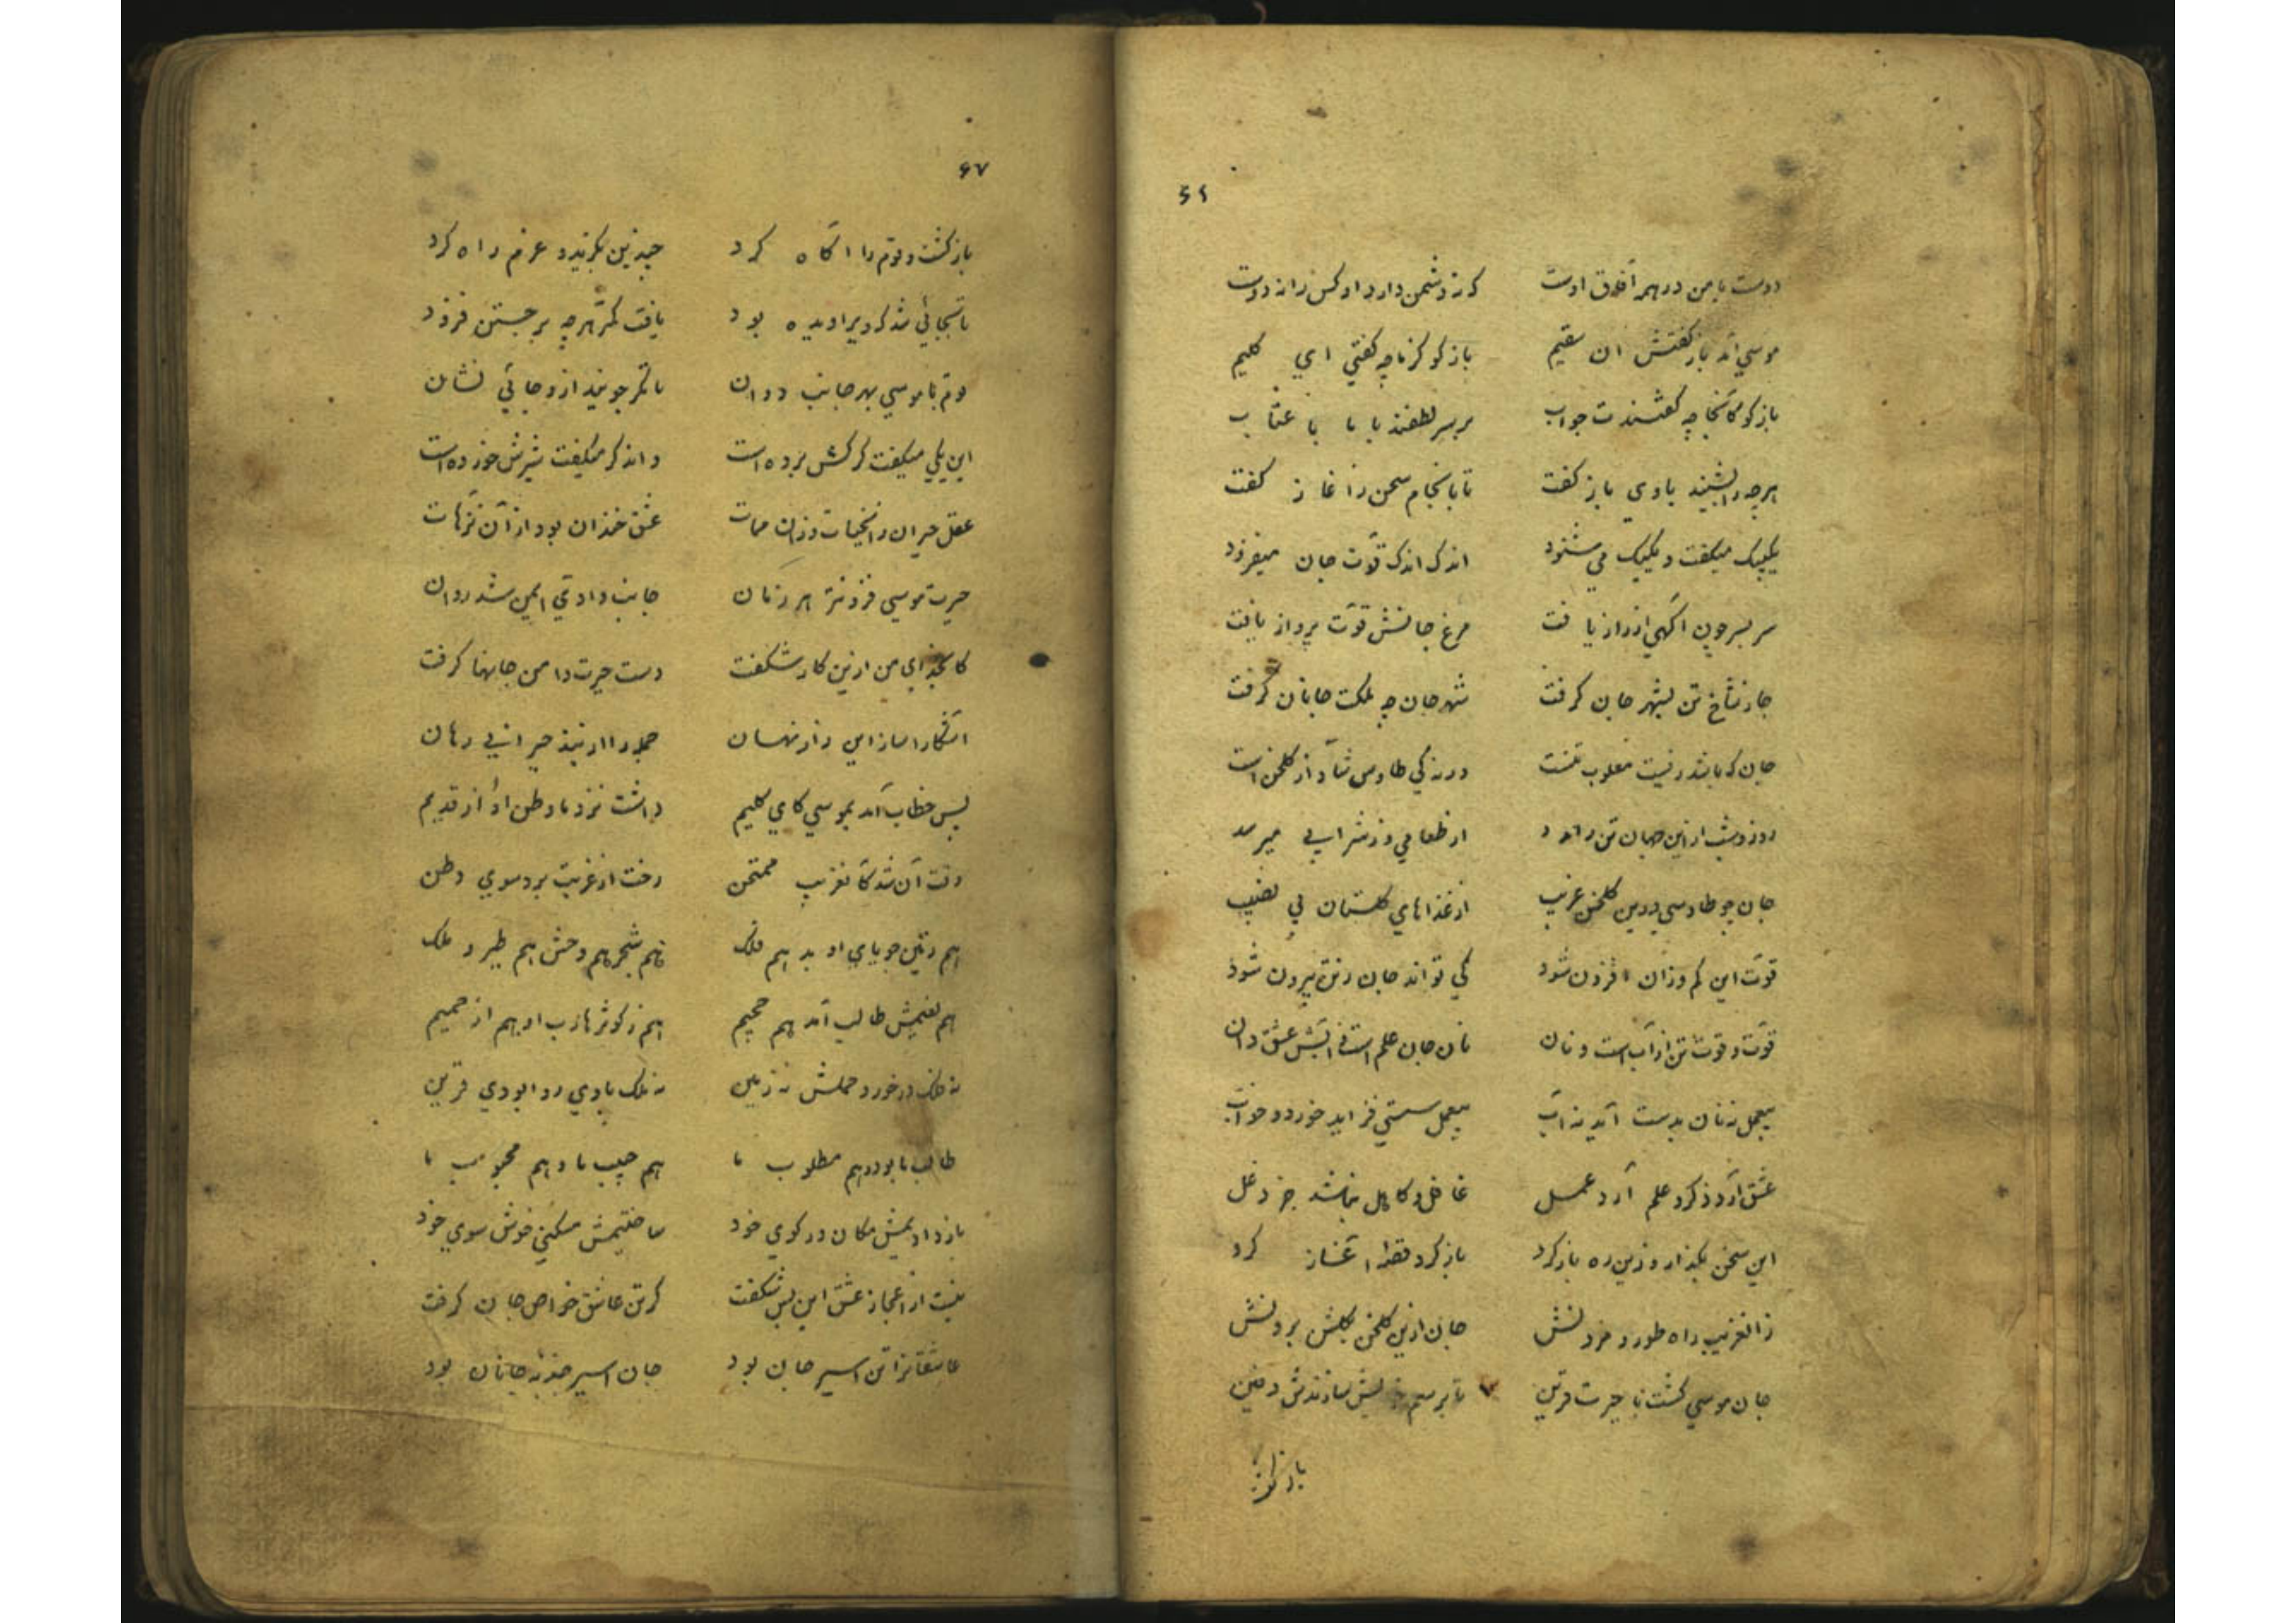 دوست با من در همه آفاق اوست که نه دشمن دارد او کس را نه دوست
موسی آمد باز گفتش آن سقیم باز گو کز ما چه گفتی ای کلیم
باز گو کانجا چه گفتندت جواب بر سر لطفند با ما یا عتاب
هرچه را بشنید با وی باز گفت تا بانجام سخن ز آغاز گفت
یکیک میگفت و یکیک می شنود اندک اندک قوّت جان میفزود
سر بسر چون آگهی از راز یافت مرغ جانش قوّت پرواز یافت
تن بشهر جان گرفت شهر جان چه ملکت جانان گرفت
جان که باشد مغلوب تنست ورنه کی طاوس شاد از گلخن است
روز و شب ازین جهان تن را از طعامی وز شرابی میرسد
جان چو طاوسی درین گلخن غریب از غذاهای گلستان بی نصیب
قوّت این کم وزان افزون شود کی تواند جان ز تن بیرون شود
قوّت و قوت تن از آب است و نان نان جان علم است آبش عشق دان
بیعمل نه نان بدست آید نه آب بیعمل سستی فزاید خورد و خواب
عشق آرد ذکر و علم آرد عمل غافل و کاهل نباشد جز دغل
این سخن بگذار وزین ره باز گرد باز گرد آغاز کرد
زانغریب راه طور و جان ازین گلخن بگلشن بردنش
جان موسی گشت با حیرت قرین تا برسم سازندش دفین
باز گشت
۶۷
باز گشت و قوم را آگاه کرد چند تن بگزید و عزم راه کرد
تا بجائی شد که ویرا دیده بود یافت کمتر هرچه بر جستن فزود
قوم با موسی بهر جانب دوان تا مگر جویند ازو جائی نشان
این یکی میگفت گرگش برده است واندگر میگفت شیرش خورده است
عقل حیران زانحیات وزان ممات عشق خندان بود از آن ترّهات
حیرت موسی فزونتر هر زمان جانب وادی ایمن شد روان
کای خدای من ازین کار شگفت دست حیرت دامن جانها گرفت
آشکارا ساز این راز نهان جمله را از بند حیرانی رهان
پس خطاب آمد بموسی کای کلیم داشت نزد ما وطن او از قدیم
وقت آن شد کانغریب ممتحن رخت از غربت برد سوی وطن
هم زمین جویای او بد هم فلک هم شجر هم وحش هم طیر و ملک
هم نعیمش طالب آمد هم جحیم هم ز کوثر شارب او هم از حمیم
نه فلک در خورد حملش نه زمین نه ملک با وی روا بودی قرین
طالب ما بود و هم مطلوب ما هم حبیب ما و هم محبوب ما
باز دادیمش مکان در کوی خود ساختیمش مسکنی خوش سوی خود
نیست از اعجاز عشق این بس شگفت گر تن عاشق خواص جان گرفت
عاشقانرا تن اسیر جان بود جان اسیر جذبه جانان بود